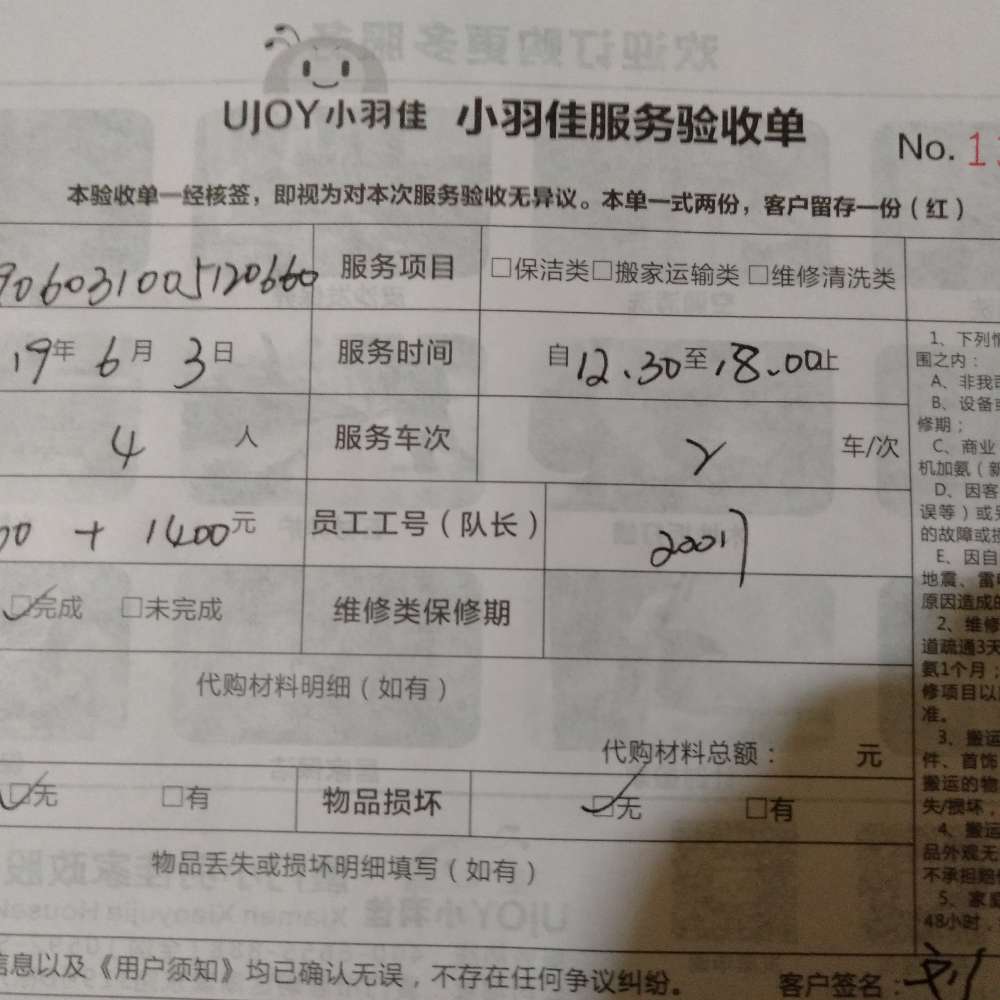 UJOY小羽佳 小羽佳服务验收单
No. 1
本验收单一经核签，即视为对本次服务验收无异议。本单一式两份，客户留存一份（红）
906031005120660 服务项目 □保洁类□搬家运输类 □维修清洗类
19年 6月 3日 服务时间 自12.30至18.00止
4 人 服务车次 2 车/次
00 + 1400元 员工工号（队长） 20017
☑完成 □未完成 维修类保修期
代购材料明细（如有）
代购材料总额： 元
☑无 □有 物品损坏 ☑无 □有
物品丢失或损坏明细填写（如有）
信息以及《用户须知》均已确认无误，不存在任何争议纠纷。 客户签名：刘
1、下列情
围之内：
A、非我司
B、设备
修期；
C、商业
机加氨（新
D、因客
误等）或
的故障或损
E、因自
地震、雷
原因造成的
2、维修
道疏通3天
氨1个月；
修项目以
准。
3、搬运
件、首饰
搬运的物
失/损坏，
4、搬运
品外观无
不承担赔
5、家庭
48小时